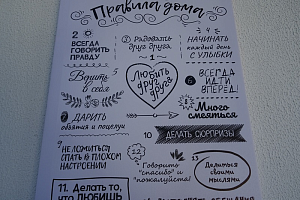 Правила дома
2
ВСЕГДА
ГОВОРИТЬ
ПРАВДУ
3 РАДОВАТЬ
друг друга
4
НАЧИНАТЬ
каждый день
С УЛЫБКИ
1
ЛЮБИТЬ
друг
друга
5
Верить
в себя
6 ВСЕГДА
ИДТИ
ВПЕРЁД!
8
Много
смеяться
7 ДАРИТЬ
объятия и поцелуи
10 ДЕЛАТЬ СЮРПРИЗЫ
НЕ ЛОЖИТЬСЯ
СПАТЬ В ПЛОХОМ
НАСТРОЕНИИ
12
Говорить
"спасибо" и
"пожалуйста!"
13
Делиться
своими
мыслями
11. Делать то,
что ЛЮБИШЬ